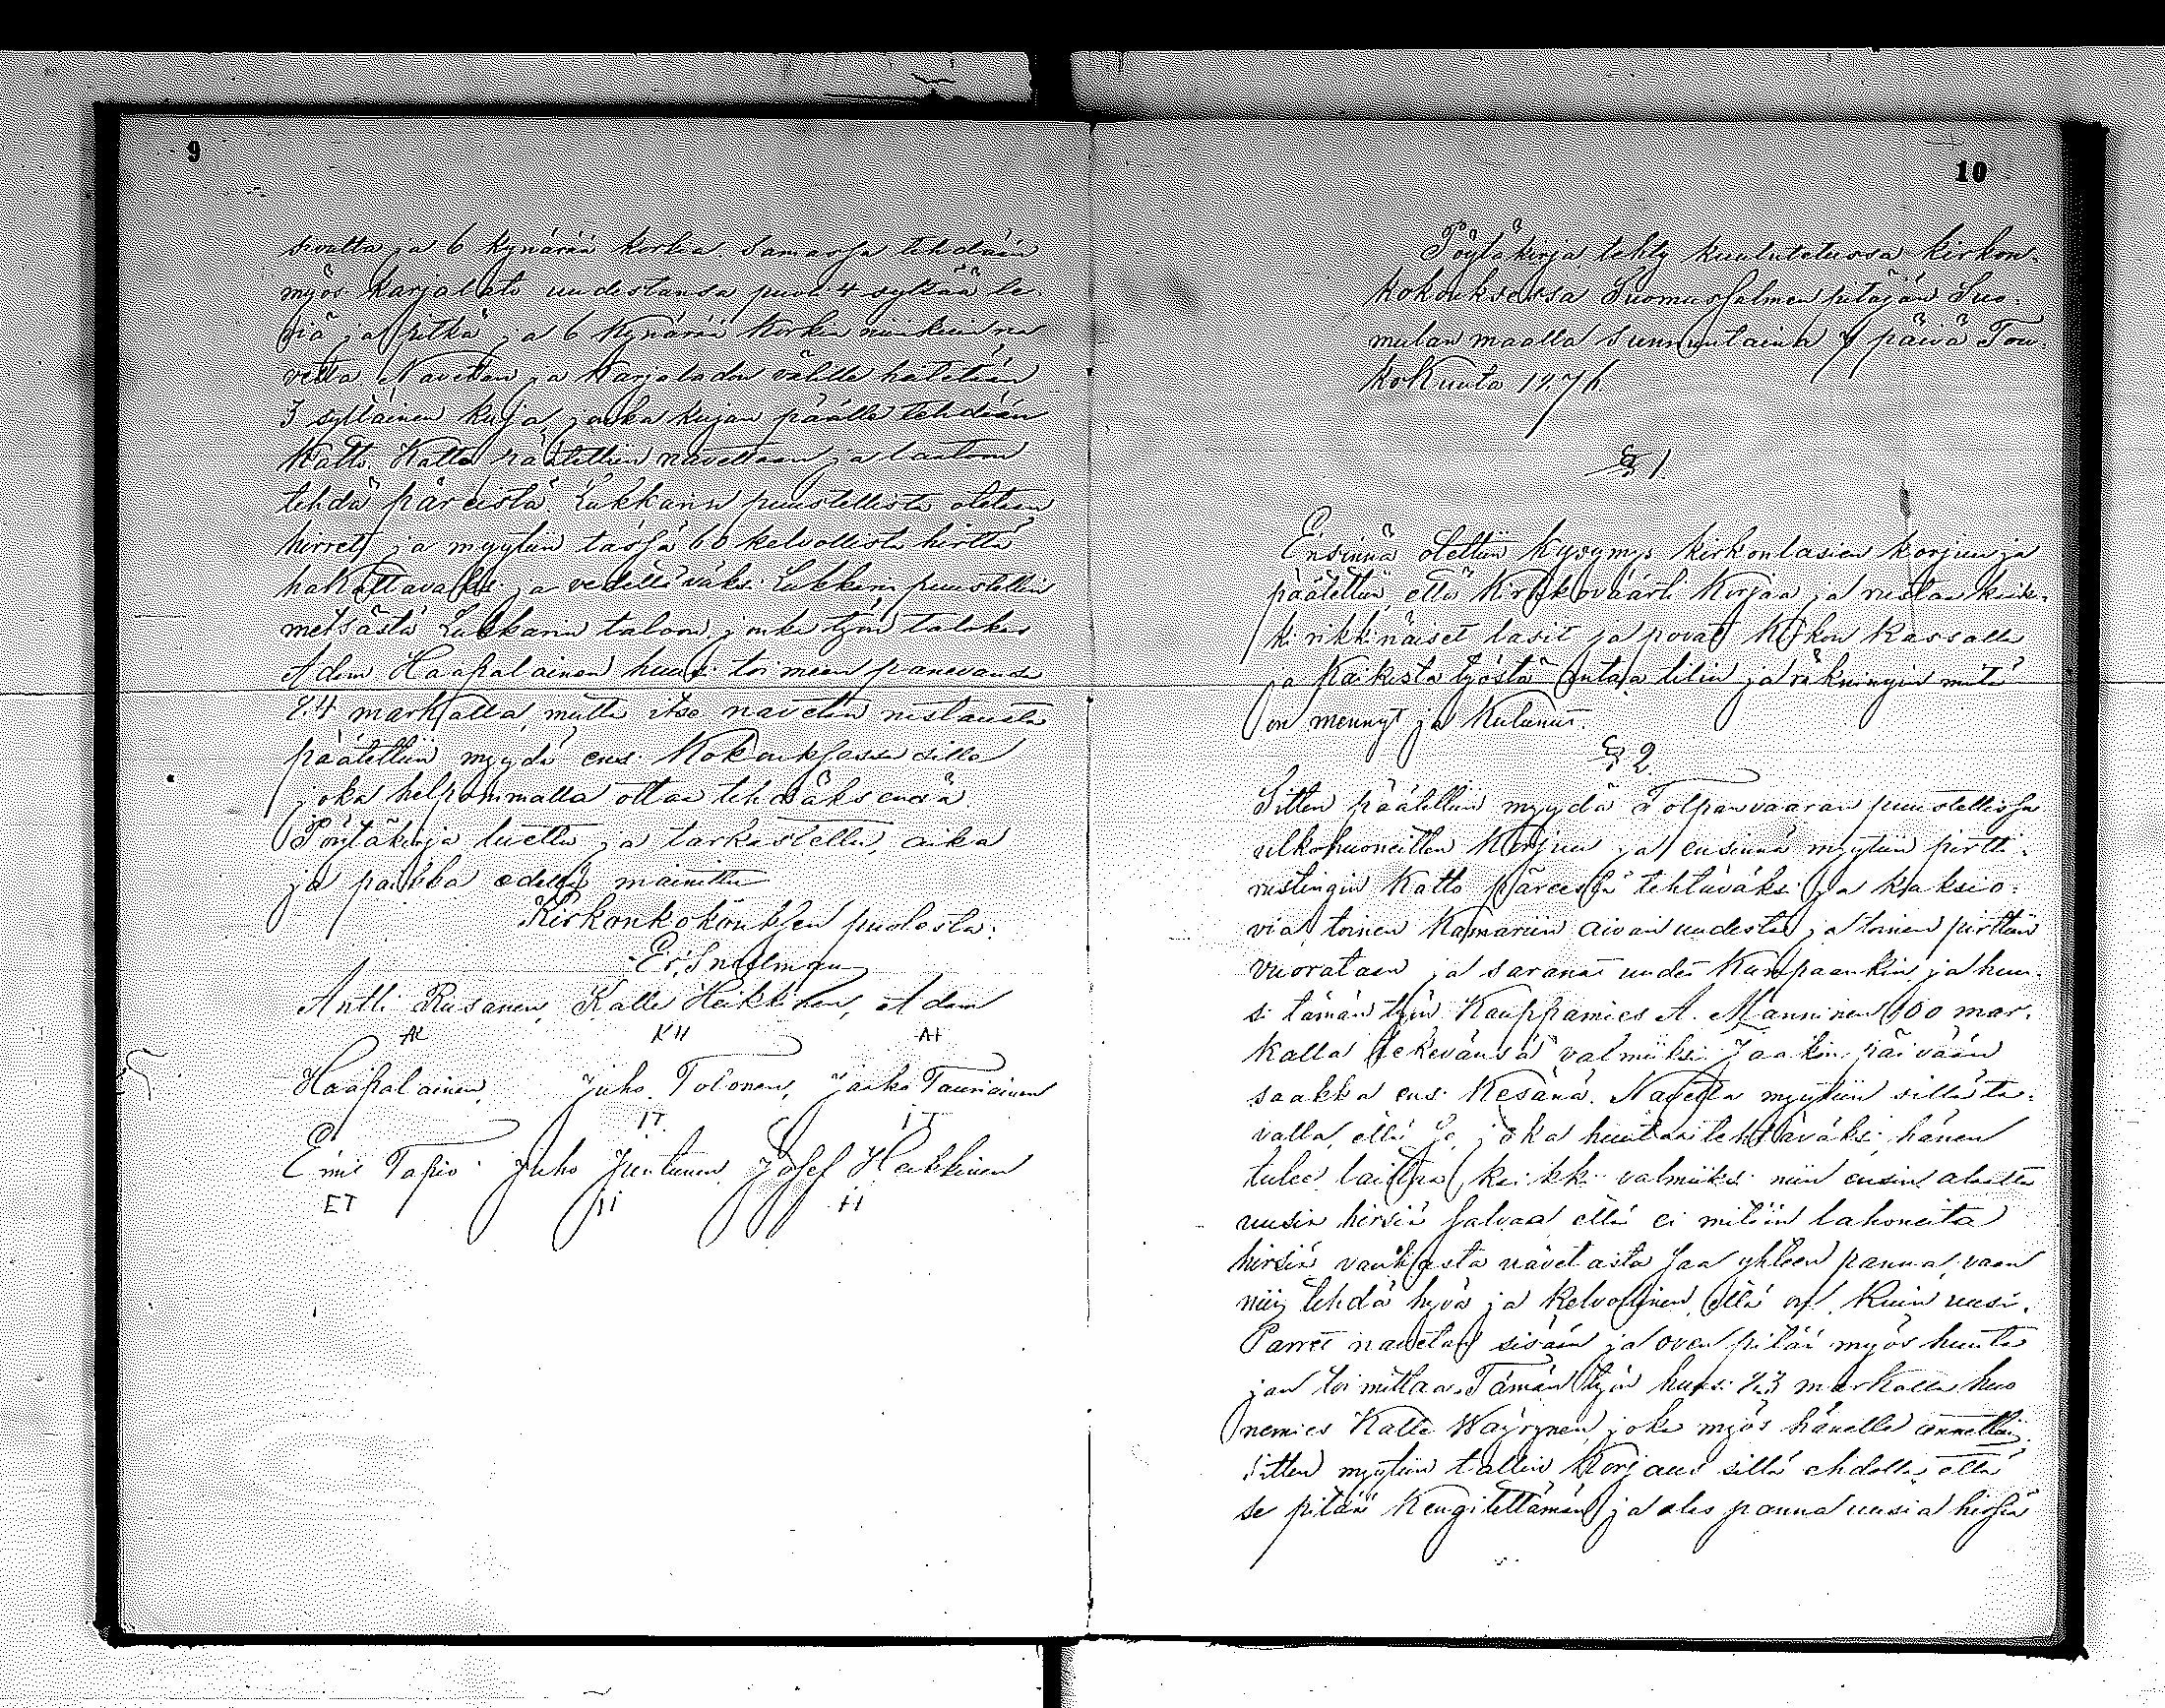 9
sivulta ja 6 kynärää korkea. Samassa tehdään
myös karjalato uudestansa puol 4 syltää le
viä ja pitkä ja 6 kynärää korkea niinkuin na
vetta. Navetan ja karjaladon välille hatetaan
3 syltäinen kuja, jonka kujan päälle tehdään
katto. Katto päätettiin navettaan ja laatoon
tehdä päreistä. Lukkarin puustellista otetaan
hirret ja myytiin tässä 60 kelvollista hirttä
hakattavaksi ja vedettäväksi Lukkarin puustellin
metsästä Lukkarin taloon, jonka työn talokas
Adam Haapalainen huusi toimeen panevansa
84 markalla, mutta itse navetan rustausta
päätettiin myydä ens. Kokouksessa sille
joka helpommalla ottaa tehdäksensä.
Pöytäkirja luettu ja tarkastettu, aika
ja paikka edellä mainittu
Kirkonkokouksen puolesta:
Er. Snellman
Antti Rusanen, Kalle Heikkinen, Adam
AR KH AH
Haapalainen, Juho Tolonen, Jaako Tauriainen
IT IT
Emil Tapio Juho Juntunen Josef Heikkinen
ET II HI
10
Pöytäkirja tehty kuulutetussa kirkon-
kokouksessa Suomussalmen pitäjän Suo-
mulan maalla Sunnuntaina 7 päivä Tou-
kokuuta 1876
§ 1.
Ensinnä otettiin kysymys kirkonlasien korjuu ja
päätettiin, että Kirkkoväärti korjaa ja rustaa kaik-
ki rikkinäiset lasit ja povat Kirkon kassalla
ja kaikista työstä antaa tilin ja räkningin mitä
on mennyt ja kulunut.
§ 2.
Sitten päätettiin myydä Tolpanvaaran puustellissa
ulkohuonetten korjuu ja ensinnä myytiin pirtti-
rustingin katto päreessä tehtäväksi ja kaksi o-
via, toinen kamariin aivan uudesta ja toinen pirttiin
vuorataan ja saranat uudet kumpaankin, ja huu-
si tämän työn Kauppamies A. Manninen 100 mar-
kalla tekevänsä valmiiksi Jaakin päivään
saakka ens. Kesänä. Navetta myytiin sillä ta-
valla, että se, joka huutaa tehtäväksi, hänen
tulee laittaa kaikki valmiiksi niin ensin alaalta
uusia hirsiä salvaa että ei mitään lahoneita
hirsiä vanhasta navetasta saa yhteen panna, vaan
niin tehdä hyvä ja kelvollinen, että on kuin uusi.
Parret navetan sisään ja oven pitää myös huuta
jan toimittaa. Tämän työn huusi 83 markalla huo
nemies Kalle Wäyrynen, joka myös hänelle annettiin.
Sitten myytiin tallin korjaus sillä ehdolla, että
se pitää kengitettämän ja alas panna uusia hirsiä